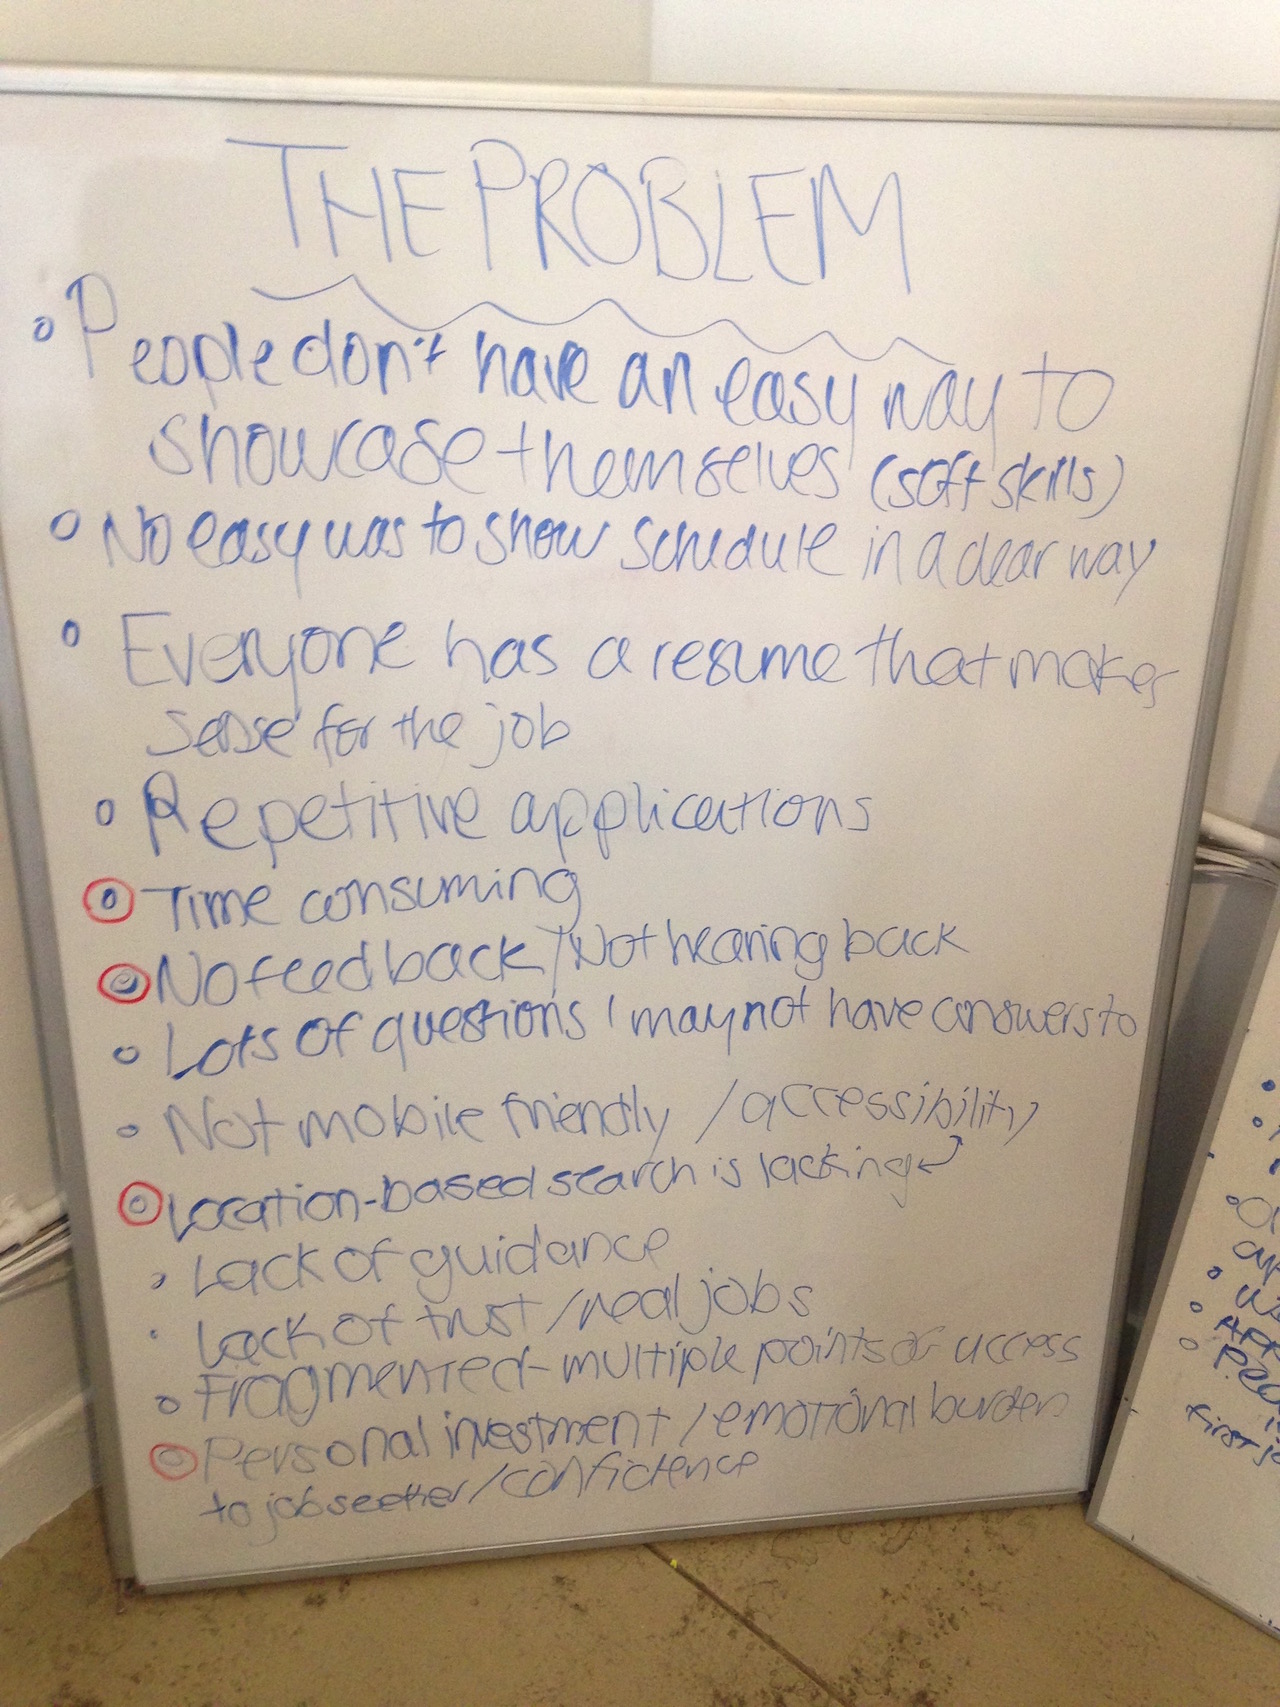 THE PROBLEM
People don't have an easy way to
showcase themselves (soft skills)
No easy was to show schedule in a clear way
Everyone has a resume that makes
sense for the job
Repetitive applications
Time consuming
No feedback / Not hearing back
Lots of questions I may not have answers to
Not mobile friendly / accessibility
Location-based search is lacking
Lack of guidance
Lack of trust / real jobs
Fragmented - multiple points of access
Personal investment / emotional burden
to job seeker / confidence
First